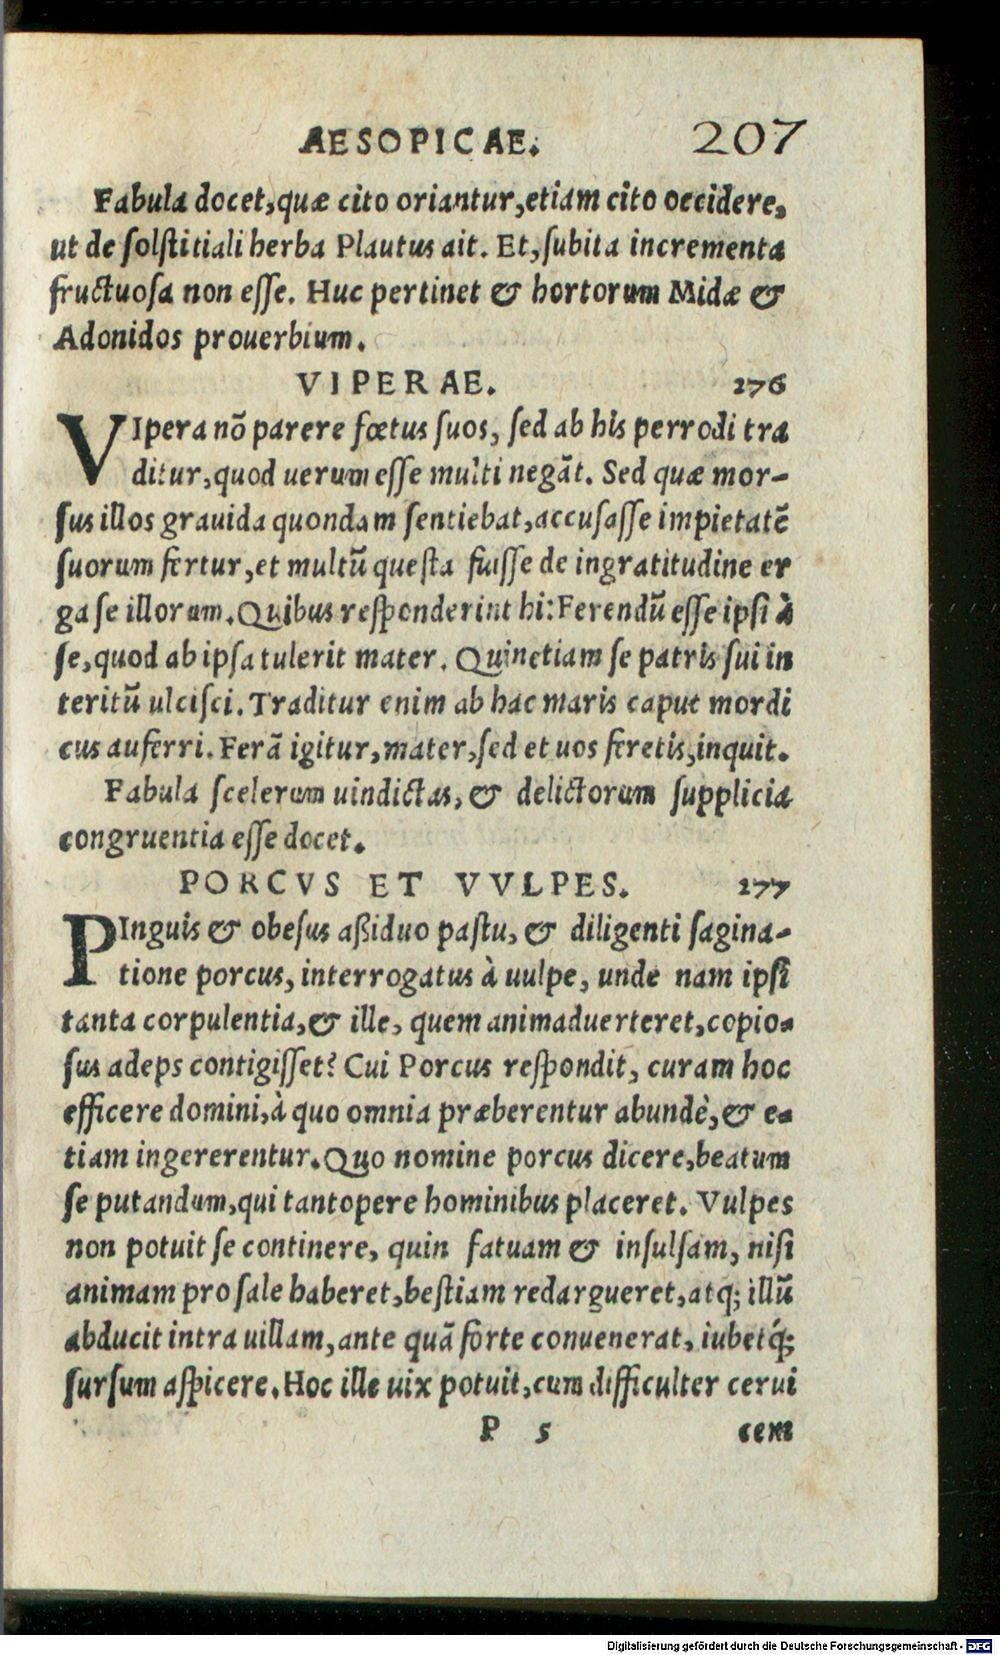 AESOPICAE. 207
Fabula docet, quæ cito oriantur, etiam cito occidere,
ut de solstitiali herba Plautus ait. Et, subita incrementa
fructuosa non esse. Huc pertinet & hortorum Midæ &
Adonidos prouerbium.
VIPERAE. 276
VIpera nõ parere fœtus suos, sed ab his perrodi tra
ditur, quod uerum esse multi negāt. Sed quæ mor-
sus illos grauida quondam sentiebat, accusasse impietatē
suorum fertur, et multū questa fuisse de ingratitudine er
ga se illorum. Quibus responderint hi: Ferendū esse ipsi à
se, quod ab ipsa tulerit mater. Quinetiam se patris sui in
teritū ulcisci. Traditur enim ab hac maris caput mordi
cus auferri. Ferā igitur, mater, sed et uos feretis, inquit.
Fabula scelerum uindictas, & delictorum supplicia
congruentia esse docet.
PORCVS ET VVLPES. 277
PInguis & obesus aßiduo pastu, & diligenti sagina-
tione porcus, interrogatus à uulpe, unde nam ipsi
tanta corpulentia, & ille, quem animaduerteret, copio-
sus adeps contigisset? Cui Porcus respondit, curam hoc
efficere domini, à quo omnia præberentur abundè, & e-
tiam ingererentur. Quo nomine porcus dicere, beatum
se putandum, qui tantopere hominibus placeret. Vulpes
non potuit se continere, quin fatuam & insulsam, nisi
animam pro sale haberet, bestiam redargueret, atq; illū
abducit intra uillam, ante quā forte conuenerat, iubetq́;
sursum aspicere. Hoc ille uix potuit, cum difficulter cerui
P 5 cem
Digitalisierung gefördert durch die Deutsche Forschungsgemeinschaft - DFG